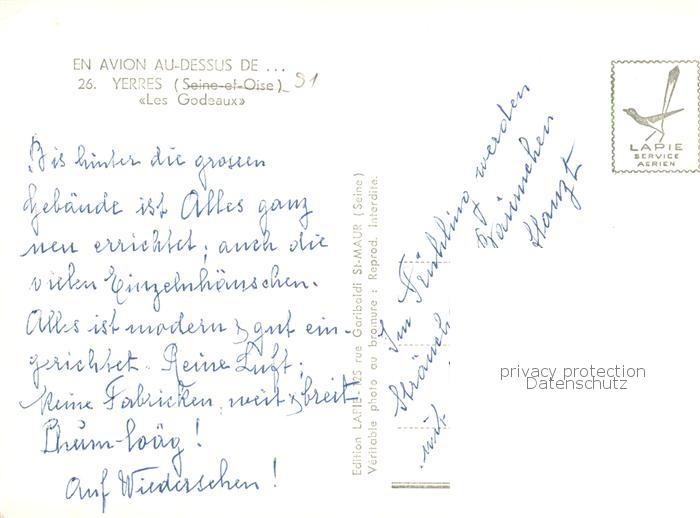 EN AVION AU-DESSUS DE ...
26. YERRES (Seine-et-Oise) 91
«Les Godeaux»
Bis hinter die grossen
Gebäude ist Alles ganz
neu errichtet; auch die
vielen Einzelnhäuschen.
Alles ist modern & gut ein-
gerichtet. Reine Luft;
keine Fabricken, weit & breit
auf Wiedersehen!
Edition LAPIE - 125 rue Garibaldi St-MAUR (Seine)
Véritable photo au bromure : Reprod. Interdite.
Im Frühling werden
Sträuch Bäumchen
mit
LAPIE
SERVICE
AERIEN
privacy protection
Datenschutz